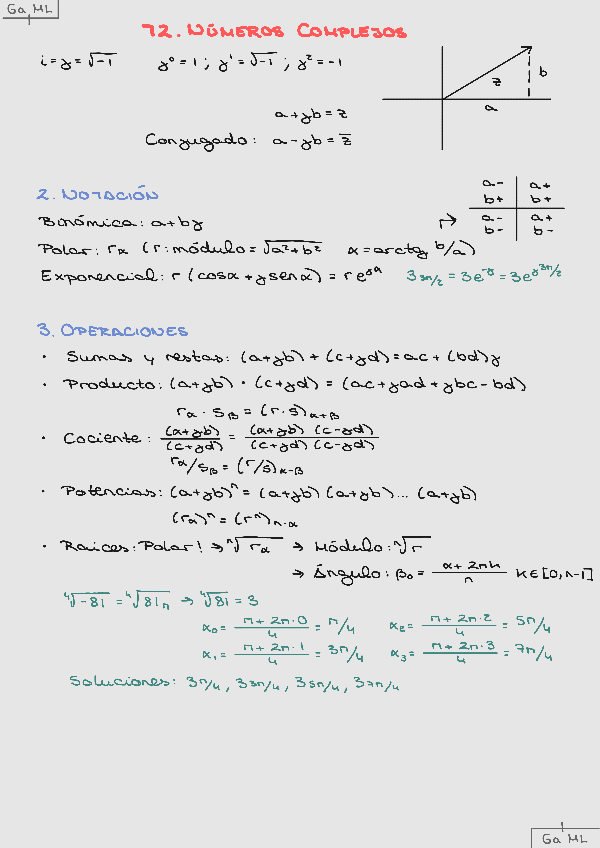 Ga ML
72. NÚMEROS COMPLEJOS
i=j=√-1 j⁰=1; j¹=√-1; j²=-1
z b
a
a+jb=z
Conjugado: a-jb=z̄
2. NOTACIÓN
a- a+
b+ b+
a- a+
b- b-
Binómica: a+bj
Polar: rα (r:módulo=√a²+b² α=arctg b/a)
Exponencial: r(cosα+jsenα)=re^jα 3 3π/2=3e^-j=3e^j3π/2
3. OPERACIONES
· Sumas y restas: (a+jb)+(c+jd)=ac+(bd)j
· Producto: (a+jb)·(c+jd)=(ac+jad+jbc-bd)
rα·sβ=(r·s)α+β
· Cociente: (a+jb)/(c+jd)=(a+jb)(c-jd)/(c+jd)(c-jd)
rα/sβ=(r/s)α-β
· Potencias: (a+jb)ⁿ=(a+jb)(a+jb)...(a+jb)
(rα)ⁿ=(rⁿ)n·α
· Raices: Polar! → ⁿ√rα → Módulo: ⁿ√r
→ Ángulo: β₀=(α+2πk)/n k∈[0,n-1]
⁴√-81=⁴√81π → ⁴√81=3
α₀=(π+2π·0)/4=π/4 α₂=(π+2π·2)/4=5π/4
α₁=(π+2π·1)/4=3π/4 α₃=(π+2π·3)/4=7π/4
Soluciones: 3π/4, 33π/4, 35π/4, 37π/4
Ga ML